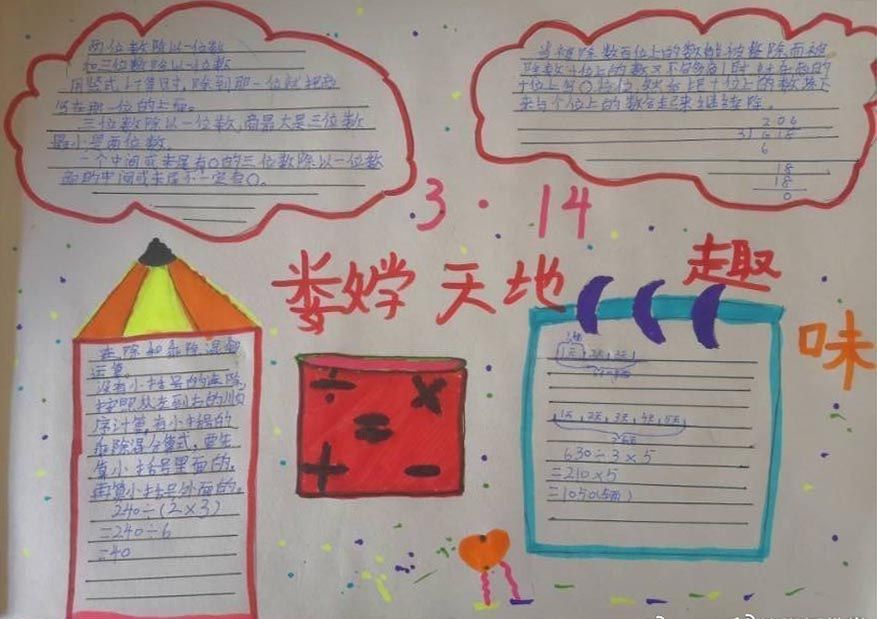 两位数除以一位数
和三位数除以一位数
用竖式计算时，除到那一位就把商
写在那一位的上面。
三位数除以一位数，商最大是三位数
最小是两位数。
一个中间或末尾有0的三位数除以一位数
商的中间或末尾不一定有0。
当被除数百位上的数能被整除，而被
除数十位上的数又不够商1时，就在商的
十位上写0占位，然后把十位上的数落下
来与个位上的数合起来继续除。
206
3)618
6
18
18
0
3·14
数学天地
趣
味
连除和乘除混合
运算。
没有小括号的连除，
按照从左到右的顺
序计算，有小括号的
乘除混合算式，要先
算小括号里面的，
再算小括号外面的。
240÷(2×3)
=240÷6
=40
÷ ×
=
+ −
1天 2天 3天
1天 2天 3天 4天 5天
630÷3×5
=210×5
=1050